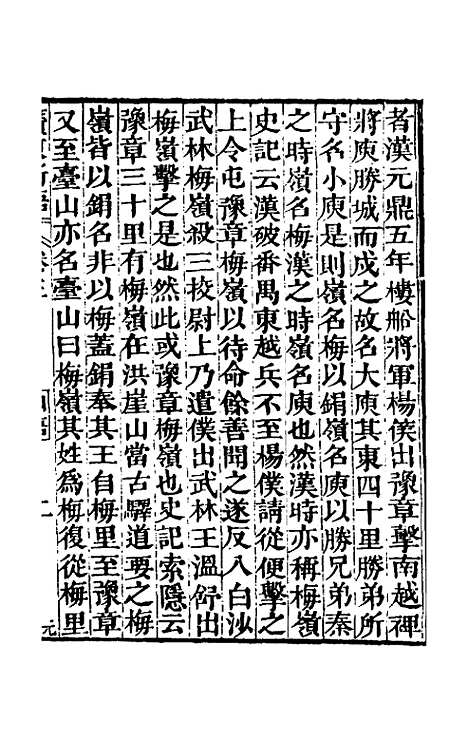 者漢元鼎五年樓船將軍楊僕出豫章擊南越裨
將庾勝城而戍之故名大庾其東四十里勝弟所
守名小庾是則嶺名梅以鋗嶺名庾以勝兄弟秦
之時嶺名梅漢之時嶺名庾也然漢時亦稱梅嶺
史記云漢破番禺東越兵不至楊僕請從便擊之
上令屯豫章梅嶺以待命餘善聞之遂反入白沙
武林梅嶺殺三校尉上乃遣僕出武林王溫舒出
梅嶺擊之是也然此或豫章梅嶺也史記索隱云
豫章三十里有梅嶺在洪崖山當古驛道要之梅
嶺皆以鋗名非以梅蓋鋗奉其王自梅里至豫章
又至臺山亦名臺山曰梅嶺其姓爲梅復從梅里
廣東新語 卷三 山語 二